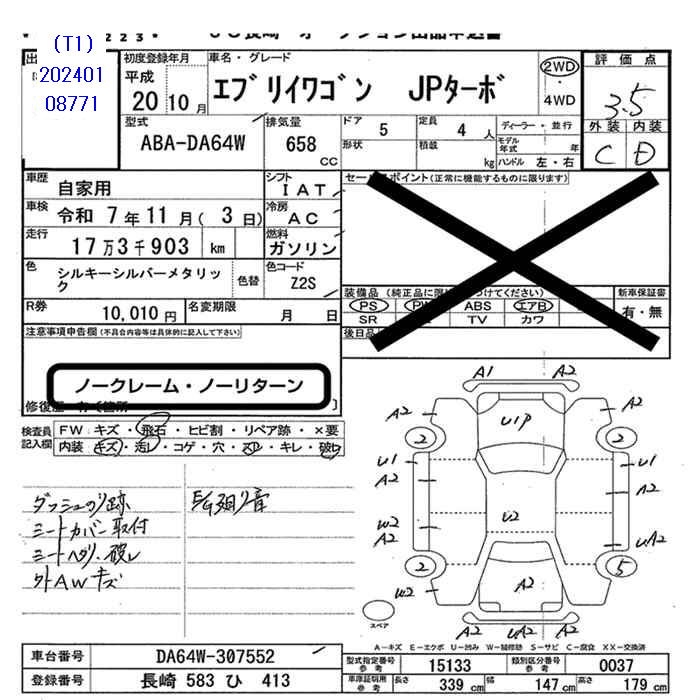 (T1)
202401
08771
初度登録年月
平成
20 10月
車名・グレード
エブリイワゴン JPターボ
2WD
・
4WD
評価点
3.5
外装 内装
C D
型式
ABA-DA64W
排気量
658
CC
ドア
5
定員
4人
形状
積載
kg
ディーラー・並行
モデル年式
年
ハンドル 左・右
車歴
自家用
シフト
IAT
車検
令和 7年11月( 3日)
冷房
AC
走行
17万3千903 km
燃料
ガソリン
色
シルキーシルバーメタリック
色替
色コード
Z2S
R券
10,010円
名変期限
月 日
セールスポイント(正常に機能するものに限ります)
装備品
PS PW ABS エアB
SR TV カワ
新車保証書
有・無
後日品
注意事項申告欄(不具合内容等は具体的に記入して下さい)
ノークレーム・ノーリターン
検査員
記入欄
FW キズ・飛石・ヒビ割・リペア跡・×要
内装 キズ・汚レ・コゲ・穴・スレ・キレ・破レ
ダッシュのり跡
シートカバー取付
シートヘタリ、破レ
外AWキズ
E/G廻り音
A1 A2
A2 A2
U1P
2 2
U1 U1
A2
A2
U2
W2
A2
UA2
2 5
W2
A2
A2
A2 UA2 A2
スペア
A-キズ E-エクボ U-凹み W-補修跡 S-サビ C-腐食 XX-交換済
車台番号
DA64W-307552
登録番号
長崎 583 ひ 413
型式指定番号
参考
15133
類別区分番号
参考
0037
車庫証明用
参考
長さ
339 cm
幅
147 cm
高さ
179 cm